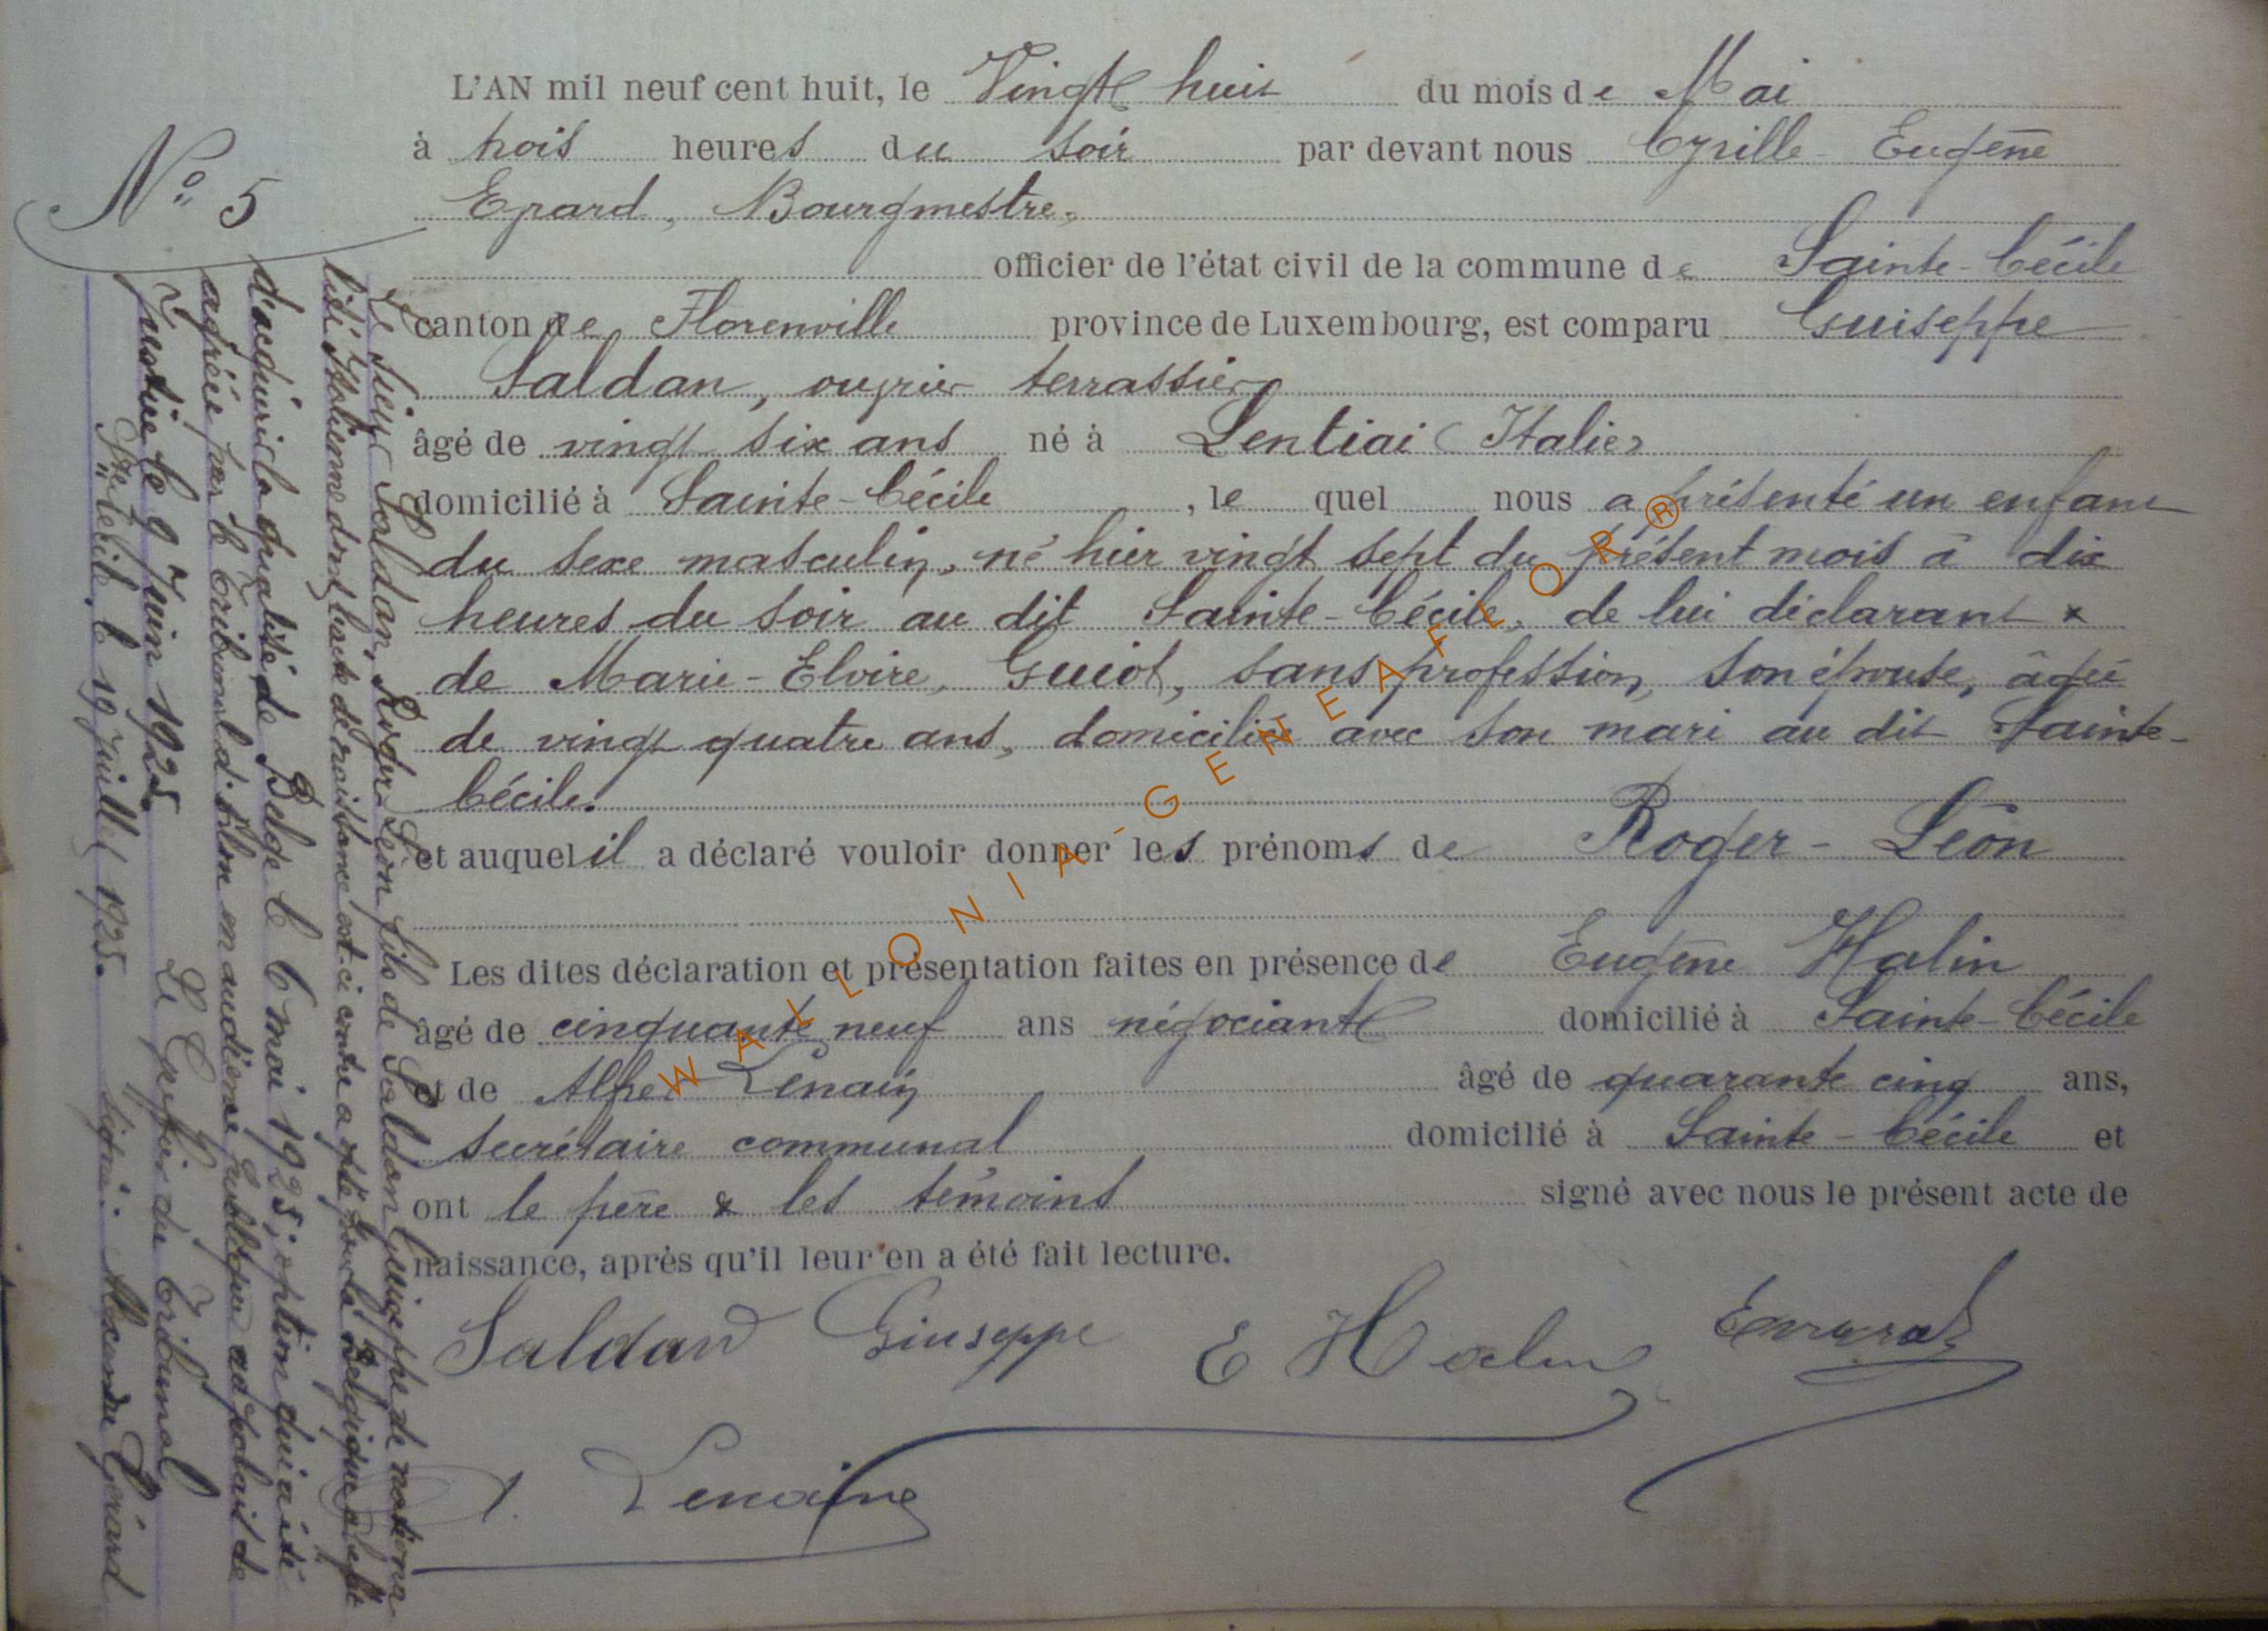 L'AN mil neuf cent huit, le Vingt huit du mois de Mai
à trois heures du soir par devant nous Cyrille Eugène
Evrard, Bourgmestre,
officier de l'état civil de la commune de Sainte-Cécile
canton de Florenville province de Luxembourg, est comparu Guiseppe
Saldan, ouvrier terrassier
âgé de vingt six ans né à Lentiai (Italie)
domicilié à Sainte-Cécile, le quel nous a présenté un enfant
du sexe masculin, né hier vingt sept du présent mois à dix
heures du soir au dit Sainte-Cécile, de lui déclarant &
de Marie-Elvire, Guiot, sans profession, son épouse, âgée
de vingt quatre ans, domiciliée avec son mari au dit Sainte-
Cécile.
et auquel il a déclaré vouloir donner les prénoms de Roger-Léon
Les dites déclaration et présentation faites en présence de Eugène Halin
âgé de cinquante neuf ans négociant domicilié à Sainte-Cécile
et de Alfred Lenain âgé de quarante cinq ans,
secrétaire communal domicilié à Sainte-Cécile et
ont le père & les témoins signé avec nous le présent acte de
naissance, après qu'il leur en a été fait lecture.
Saldan Giuseppe E Halin Evrard
A. Lenain
No 5
Le sieur Saldan, Roger Léon fils de Saldan Guiseppe de nationa
lité Italienne dont l'acte de naissance est ci contre a opté pour la Belgique à l'effet
d'acquérir la qualité de Belge le 6 mai 1925, option qui a été
agréée par le Tribunal d'Arlon en audience publique au palais de
Justice le 9 Juin 1925.
Le Greffier du Tribunal
Ste Cécile le 19 juillet 1925. Signé: Gérard
WALLONIA-GENEAFLOR®